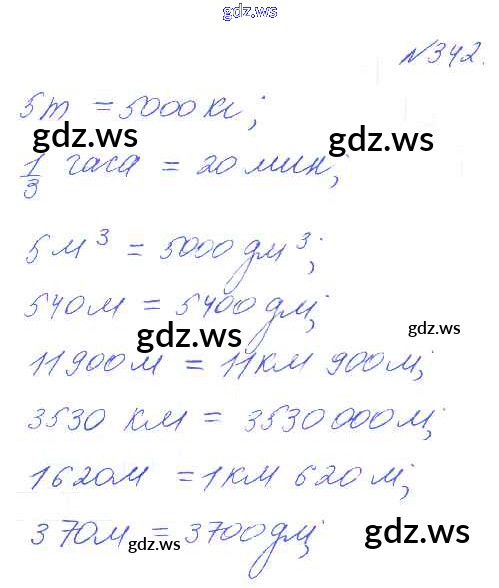 gdz.ws
№342.
5т = 5000 кг;
gdz.ws gdz.ws
1/3 часа = 20 мин,
5 м³ = 5000 дм³;
540м = 5400 дм;
gdz.ws gdz.ws
11900м = 11км 900м;
3530 км = 3530000м;
1620м = 1км 620м;
370м = 3700дм;
gdz.ws gdz.ws
gdz.ws